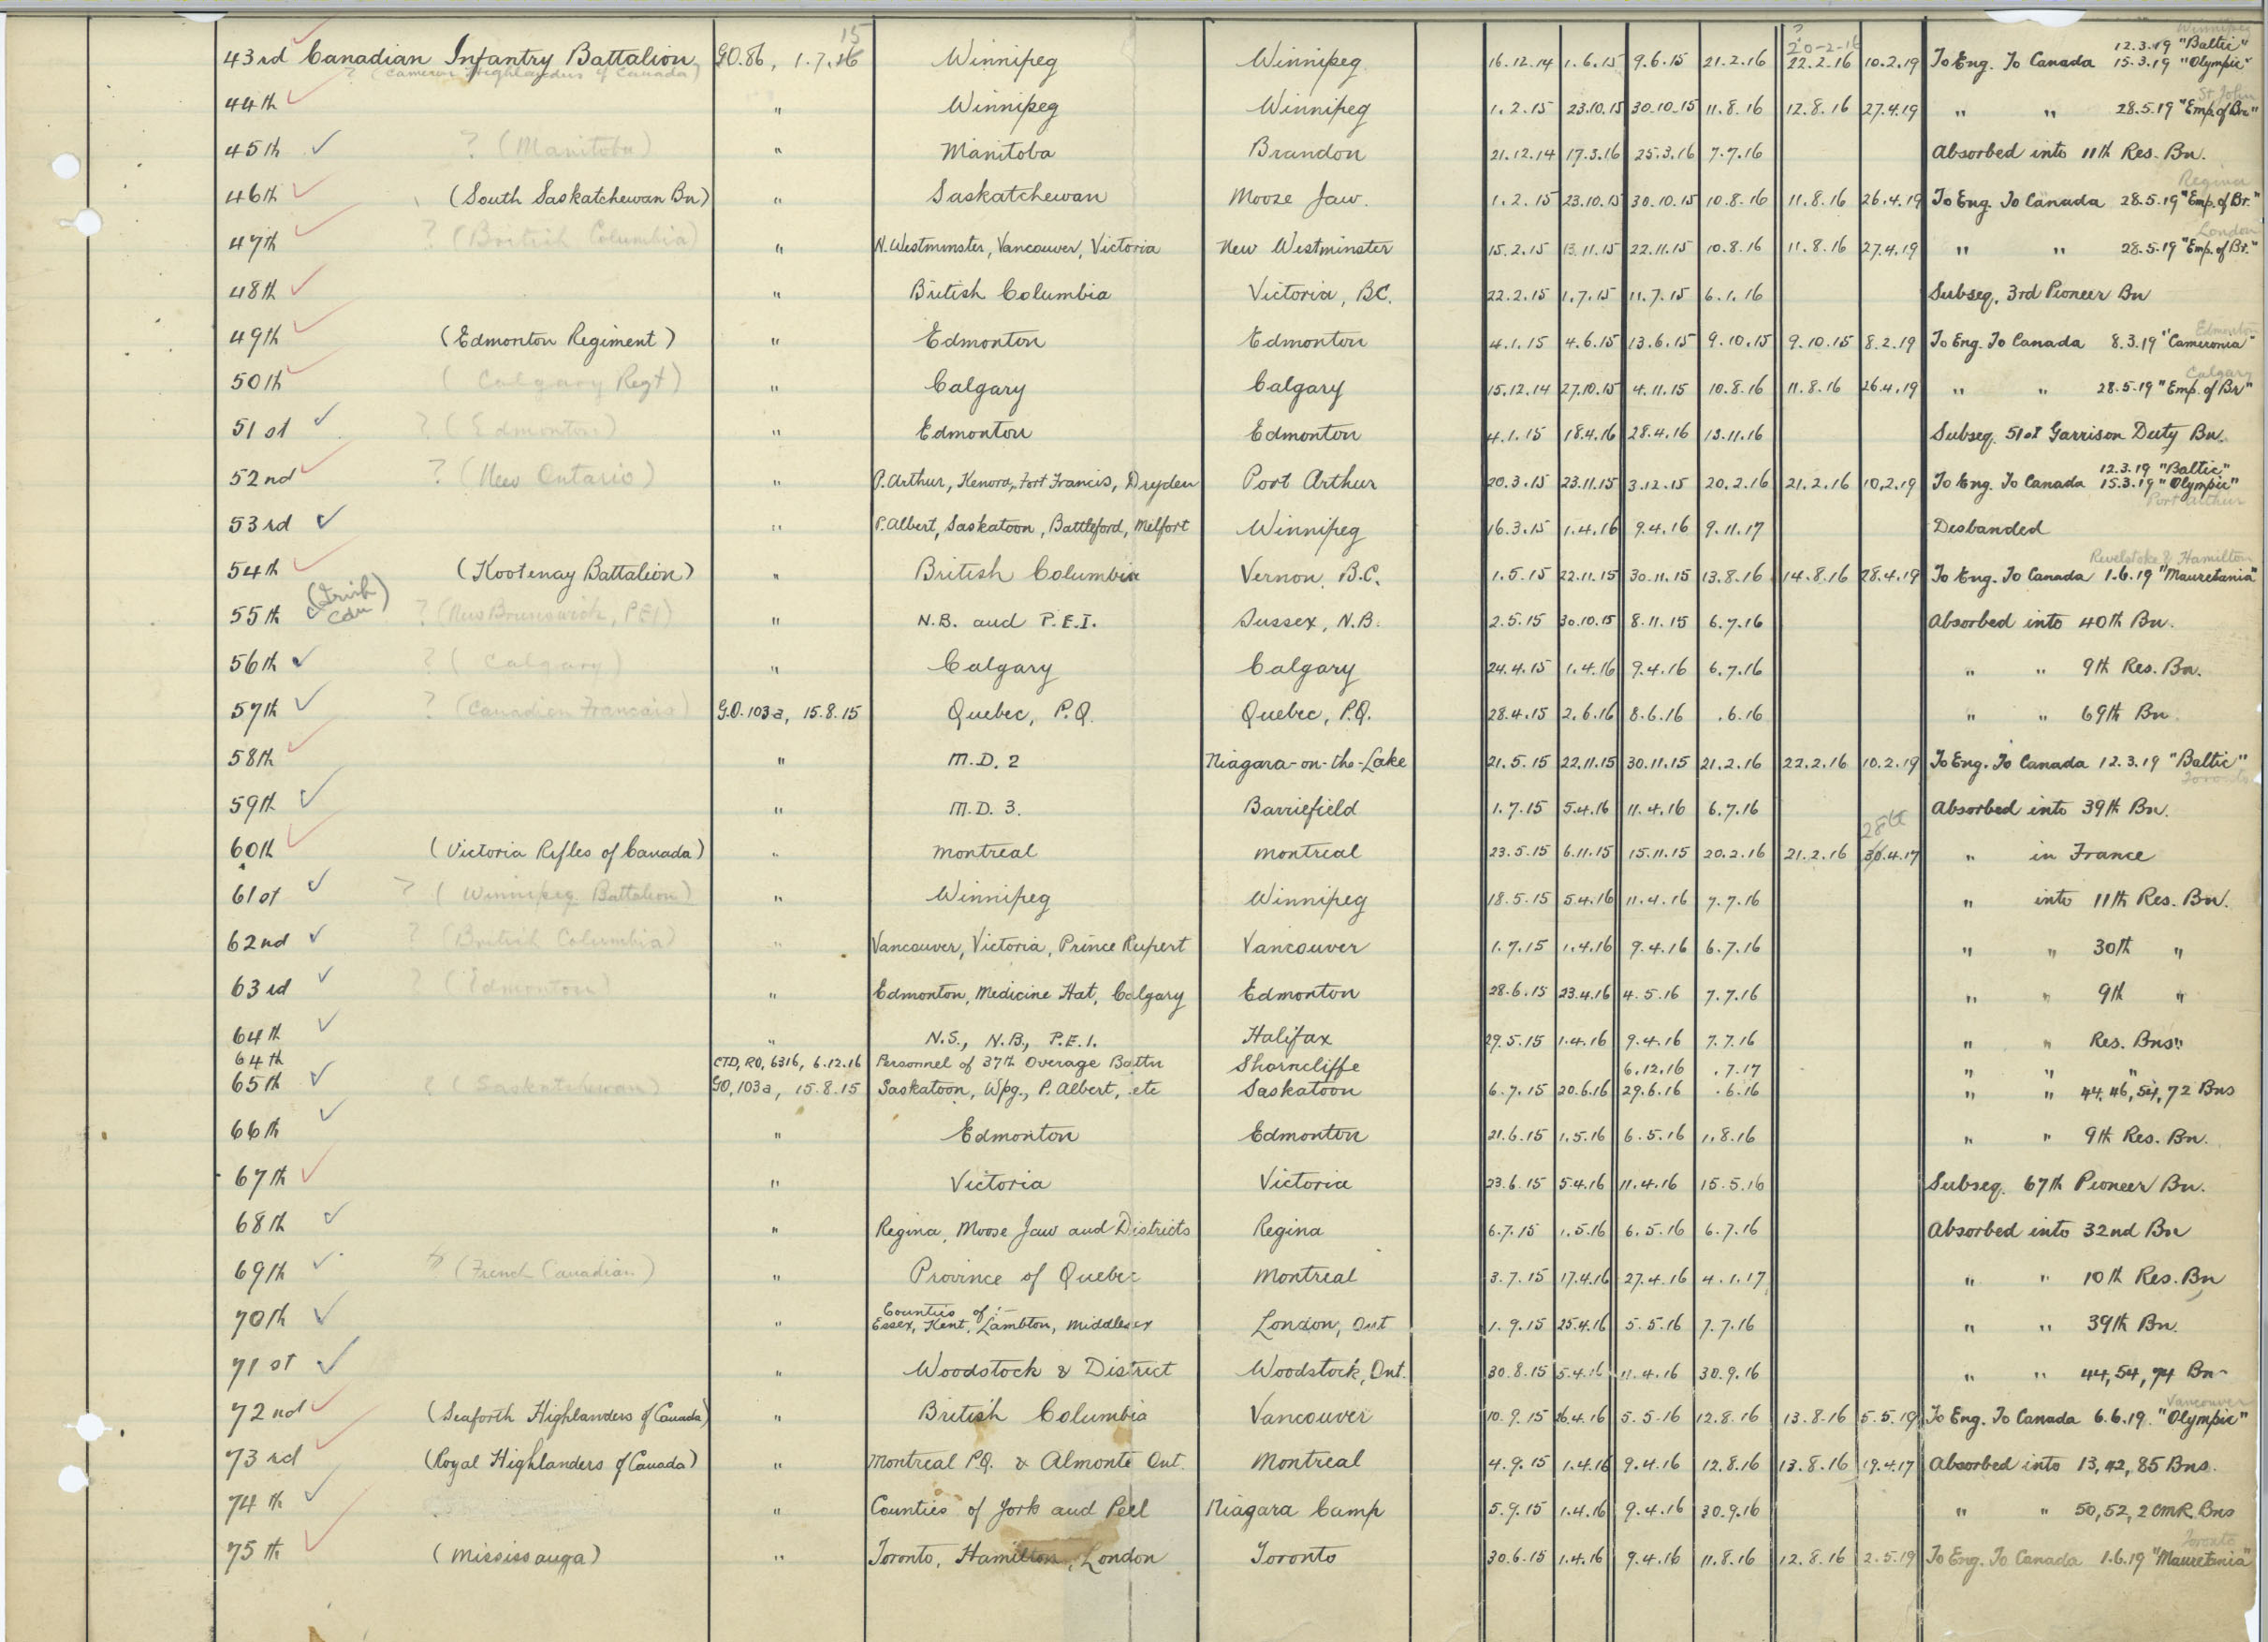 15 Winnipeg
43rd Canadian Infantry Battalion G.O.86, 1.7.16 Winnipeg Winnipeg 16.12.14 1.6.15 9.6.15 21.2.16 ? 20-2-16 22.2.16 10.2.19 To Eng. To Canada 12.3.19 "Baltic" 15.3.19 "Olympic"
? (Cameron Highlanders of Canada)
44th " Winnipeg Winnipeg 1.2.15 23.10.15 30.10.15 11.8.16 12.8.16 27.4.19 " " 28.5.19 "Emp. of Br." St. John
45th ? (Manitoba) " Manitoba Brandon 21.12.14 17.3.16 25.3.16 7.7.16 Absorbed into 11th Res. Bn.
46th (South Saskatchewan Bn) " Saskatchewan Moose Jaw. 1.2.15 23.10.15 30.10.15 10.8.16 11.8.16 26.4.19 To Eng. To Canada 28.5.19 "Emp. of Br." Regina
47th ? (British Columbia) " N. Westminster, Vancouver, Victoria New Westminster 15.2.15 13.11.15 22.11.15 10.8.16 11.8.16 27.4.19 " " 28.5.19 "Emp. of Br." London
48th " British Columbia Victoria, B.C. 22.2.15 1.7.15 11.7.15 6.1.16 Subseq. 3rd Pioneer Bn
49th (Edmonton Regiment) " Edmonton Edmonton 4.1.15 4.6.15 13.6.15 9.10.15 9.10.15 8.2.19 To Eng. To Canada 8.3.19 "Cameronia" Edmonton
50th (Calgary Regt) " Calgary Calgary 15.12.14 27.10.15 4.11.15 10.8.16 11.8.16 26.4.19 " " 28.5.19 "Emp. of Br" Calgary
51st ? (Edmonton) " Edmonton Edmonton 4.1.15 18.4.16 28.4.16 13.11.16 Subseq. 51st Garrison Duty Bn.
52nd ? (New Ontario) " P. Arthur, Kenora, Fort Francis, Dryden Port Arthur 20.3.15 23.11.15 3.12.15 20.2.16 21.2.16 10.2.19 To Eng. To Canada 12.3.19 "Baltic" 15.3.19 "Olympic" Port Arthur
53rd " P. Albert, Saskatoon, Battleford, Melfort Winnipeg 16.3.15 1.4.16 9.4.16 9.11.17 Disbanded
54th (Kootenay Battalion) " British Columbia Vernon, B.C. 1.5.15 22.11.15 30.11.15 13.8.16 14.8.16 28.4.19 To Eng. To Canada 1.6.19 "Mauretania" Revelstoke & Hamilton
55th (Irish Cdn) ? (New Brunswick, PEI) " N.B. and P.E.I. Sussex, N.B. 2.5.15 30.10.15 8.11.15 6.7.16 Absorbed into 40th Bn.
56th ? (Calgary) " Calgary Calgary 24.4.15 1.4.16 9.4.16 6.7.16 " " 9th Res. Bn.
57th ? (Canadien Francais) G.O.103a, 15.8.15 Quebec, P.Q. Quebec, P.Q. 28.4.15 2.6.16 8.6.16 .6.16 " " 69th Bn.
58th " M.D. 2 Niagara-on-the-Lake 21.5.15 22.11.15 30.11.15 21.2.16 22.2.16 10.2.19 To Eng. To Canada 12.3.19 "Baltic" Toronto
59th " M.D. 3. Barriefield 1.7.15 5.4.16 11.4.16 6.7.16 Absorbed into 39th Bn.
60th (Victoria Rifles of Canada) " Montreal Montreal 23.5.15 6.11.15 15.11.15 20.2.16 21.2.16 28th 30.4.17 " in France
61st ? (Winnipeg Battalion) " Winnipeg Winnipeg 18.5.15 5.4.16 11.4.16 7.7.16 " into 11th Res. Bn.
62nd ? (British Columbia) " Vancouver, Victoria, Prince Rupert Vancouver 1.7.15 1.4.16 9.4.16 6.7.16 " " 30th "
63rd ? (Edmonton) " Edmonton, Medicine Hat, Calgary Edmonton 28.6.15 23.4.16 4.5.16 7.7.16 " " 9th "
64th " N.S., N.B., P.E.I. Halifax 29.5.15 1.4.16 9.4.16 7.7.16 " " Res. Bns"
64th CTD, RO, 6316, 6.12.16 Personnel of 37th Overage Battn Shorncliffe 6.12.16 .7.17 " " "
65th ? (Saskatchewan) GO, 103a, 15.8.15 Saskatoon, Wpg., P. Albert, etc Saskatoon 6.7.15 20.6.16 29.6.16 .6.16 " " 44, 46, 54, 72 Bns
66th " Edmonton Edmonton 21.6.15 1.5.16 6.5.16 1.8.16 " " 9th Res. Bn.
67th " Victoria Victoria 23.6.15 5.4.16 11.4.16 15.5.16 Subseq. 67th Pioneer Bn.
68th " Regina, Moose Jaw and Districts Regina 6.7.15 1.5.16 6.5.16 6.7.16 Absorbed into 32nd Bn
69th ? (French Canadian) " Province of Quebec Montreal 3.7.15 17.4.16 27.4.16 4.1.17 " " 10th Res. Bn
70th " Counties of:- Essex, Kent, Lambton, Middlesex London, Ont 1.9.15 25.4.16 5.5.16 7.7.16 " " 39th Bn.
71st " Woodstock & District Woodstock, Ont. 30.8.15 5.4.16 11.4.16 30.9.16 " " 44, 54, 74 Bn
72nd (Seaforth Highlanders of Canada) " British Columbia Vancouver 10.9.15 16.4.16 5.5.16 12.8.16 13.8.16 5.5.19 To Eng. To Canada 6.6.19. "Olympic" Vancouver
73rd (Royal Highlanders of Canada) " Montreal P.Q. & Almonte Ont. Montreal 4.9.15 1.4.16 9.4.16 12.8.16 13.8.16 19.4.17 Absorbed into 13, 42, 85 Bns.
74th " Counties of York and Peel Niagara Camp 5.9.15 1.4.16 9.4.16 30.9.16 " " 50, 52, 2 CMR. Bns
75th (Mississauga) " Toronto, Hamilton, London Toronto 30.6.15 1.4.16 9.4.16 11.8.16 12.8.16 2.5.19 To Eng. To Canada 1.6.19 "Mauretania" Toronto